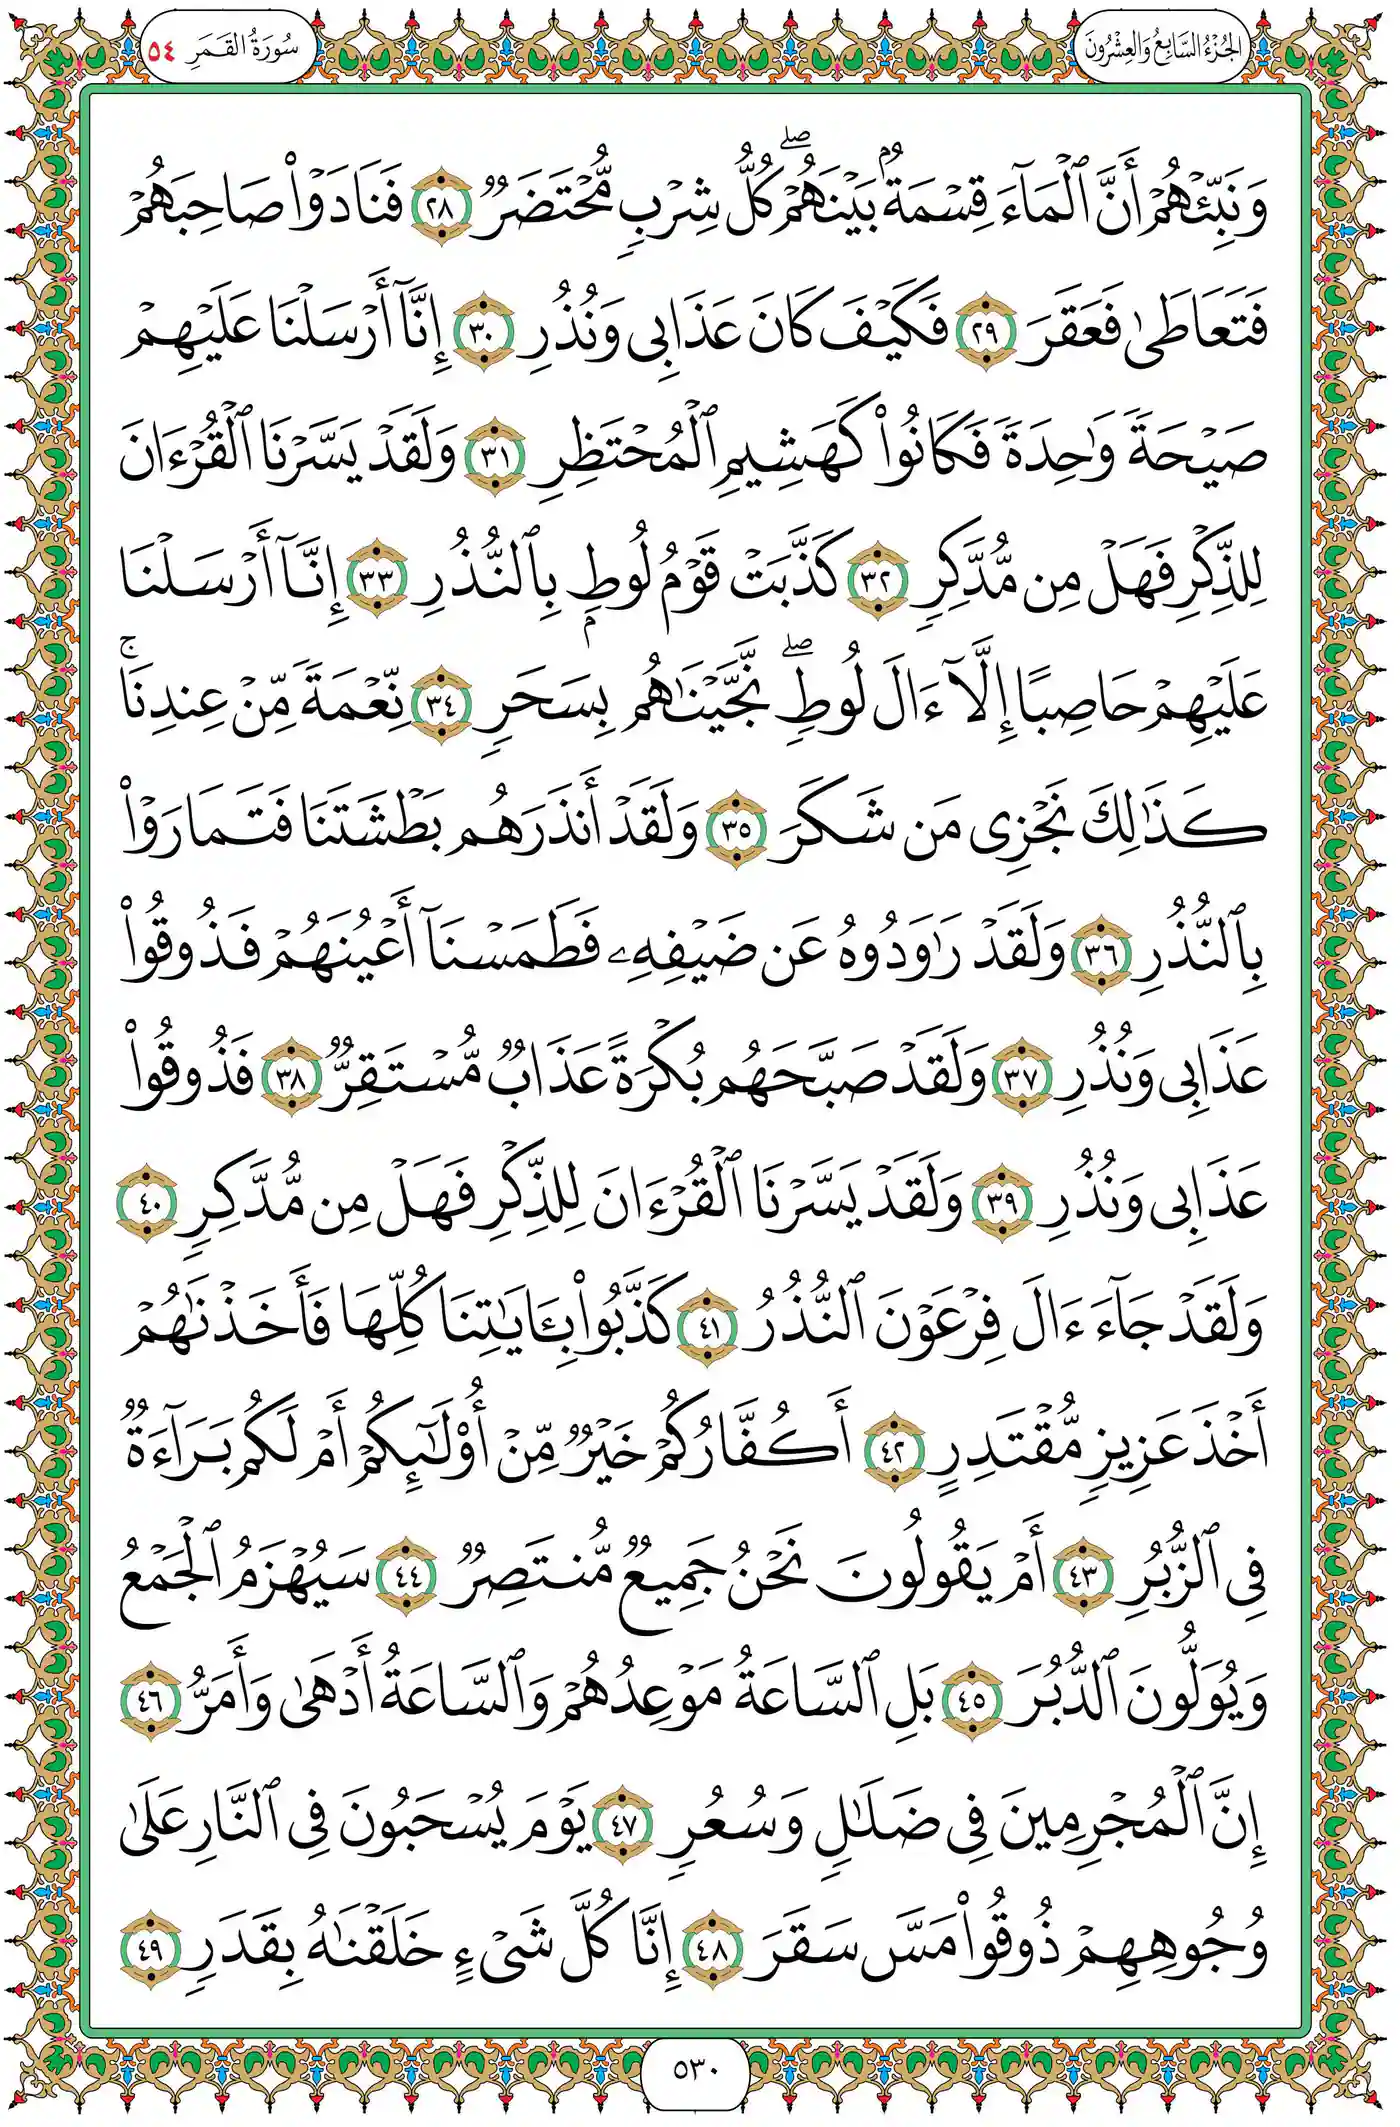 الجُزْءُ السَّابِعُ وَالعِشْرُونَ
سُورَةُ القَمَرِ ٥٤
وَنَبِّئْهُمْ أَنَّ ٱلْمَآءَ قِسْمَةٌۢ بَيْنَهُمْۖ كُلُّ شِرْبٍ مُّحْتَضَرٌ ٢٨ فَنَادَوْا۟ صَاحِبَهُمْ
فَتَعَاطَىٰ فَعَقَرَ ٢٩ فَكَيْفَ كَانَ عَذَابِى وَنُذُرِ ٣٠ إِنَّآ أَرْسَلْنَا عَلَيْهِمْ
صَيْحَةً وَٰحِدَةً فَكَانُوا۟ كَهَشِيمِ ٱلْمُحْتَظِرِ ٣١ وَلَقَدْ يَسَّرْنَا ٱلْقُرْءَانَ
لِلذِّكْرِ فَهَلْ مِن مُّدَّكِرٍ ٣٢ كَذَّبَتْ قَوْمُ لُوطٍۭ بِٱلنُّذُرِ ٣٣ إِنَّآ أَرْسَلْنَا
عَلَيْهِمْ حَاصِبًا إِلَّآ ءَالَ لُوطٍۖ نَّجَّيْنَٰهُم بِسَحَرٍ ٣٤ نِّعْمَةً مِّنْ عِندِنَاۚ
كَذَٰلِكَ نَجْزِى مَن شَكَرَ ٣٥ وَلَقَدْ أَنذَرَهُم بَطْشَتَنَا فَتَمَارَوْا۟
بِٱلنُّذُرِ ٣٦ وَلَقَدْ رَٰوَدُوهُ عَن ضَيْفِهِۦ فَطَمَسْنَآ أَعْيُنَهُمْ فَذُوقُوا۟
عَذَابِى وَنُذُرِ ٣٧ وَلَقَدْ صَبَّحَهُم بُكْرَةً عَذَابٌ مُّسْتَقِرٌّ ٣٨ فَذُوقُوا۟
عَذَابِى وَنُذُرِ ٣٩ وَلَقَدْ يَسَّرْنَا ٱلْقُرْءَانَ لِلذِّكْرِ فَهَلْ مِن مُّدَّكِرٍ ٤٠
وَلَقَدْ جَآءَ ءَالَ فِرْعَوْنَ ٱلنُّذُرُ ٤١ كَذَّبُوا۟ بِـَٔايَٰتِنَا كُلِّهَا فَأَخَذْنَٰهُمْ
أَخْذَ عَزِيزٍ مُّقْتَدِرٍ ٤٢ أَكُفَّارُكُمْ خَيْرٌ مِّنْ أُو۟لَٰٓئِكُمْ أَمْ لَكُم بَرَآءَةٌ
فِى ٱلزُّبُرِ ٤٣ أَمْ يَقُولُونَ نَحْنُ جَمِيعٌ مُّنتَصِرٌ ٤٤ سَيُهْزَمُ ٱلْجَمْعُ
وَيُوَلُّونَ ٱلدُّبُرَ ٤٥ بَلِ ٱلسَّاعَةُ مَوْعِدُهُمْ وَٱلسَّاعَةُ أَدْهَىٰ وَأَمَرُّ ٤٦
إِنَّ ٱلْمُجْرِمِينَ فِى ضَلَٰلٍ وَسُعُرٍ ٤٧ يَوْمَ يُسْحَبُونَ فِى ٱلنَّارِ عَلَىٰ
وُجُوهِهِمْ ذُوقُوا۟ مَسَّ سَقَرَ ٤٨ إِنَّا كُلَّ شَىْءٍ خَلَقْنَٰهُ بِقَدَرٍ ٤٩
٥٣٠